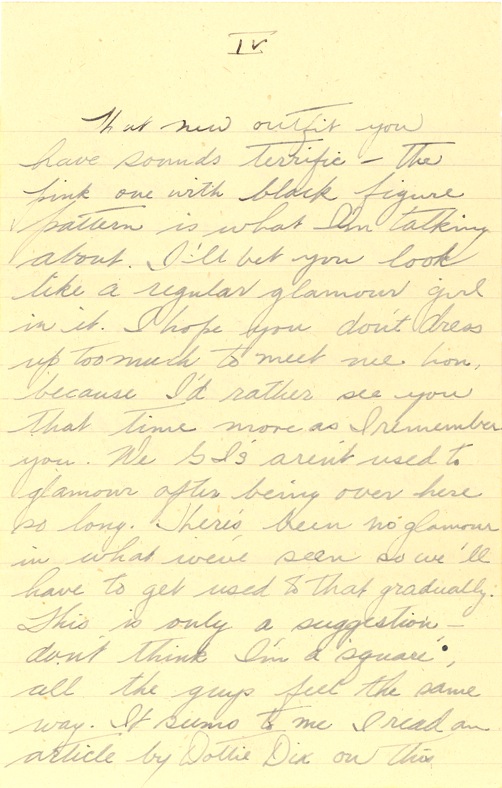 IV
That new outfit you
have sounds terrific - the
pink one with black figure
pattern is what I'm talking
about. I'll bet you look
like a regular glamour girl
in it. I hope you don't dress
up too much to meet me hon,
because I'd rather see you
that time more as I remember
you. We GI's aren't used to
glamour after being over here
so long. There's been no glamour
in what we've seen so we'll
have to get used to that gradually.
This is only a suggestion -
don't think I'm a "square",
all the guys feel the same
way. It seems to me I read an
article by Dottie Dix on this